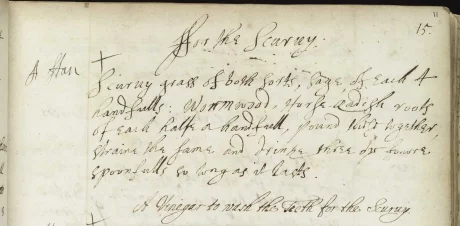 11
15.
ffor the Scuruy.
A Hall
Scuruy grass of both sorts, sage, of each 4
handfulls: Wormwood, horse Radish roots
of each halfe a handfull, pound these together,
straine the same and drinke three or foure
spoonfulls so long as it lasts.
A Vinegar to wash the Teeth for the Scuruy